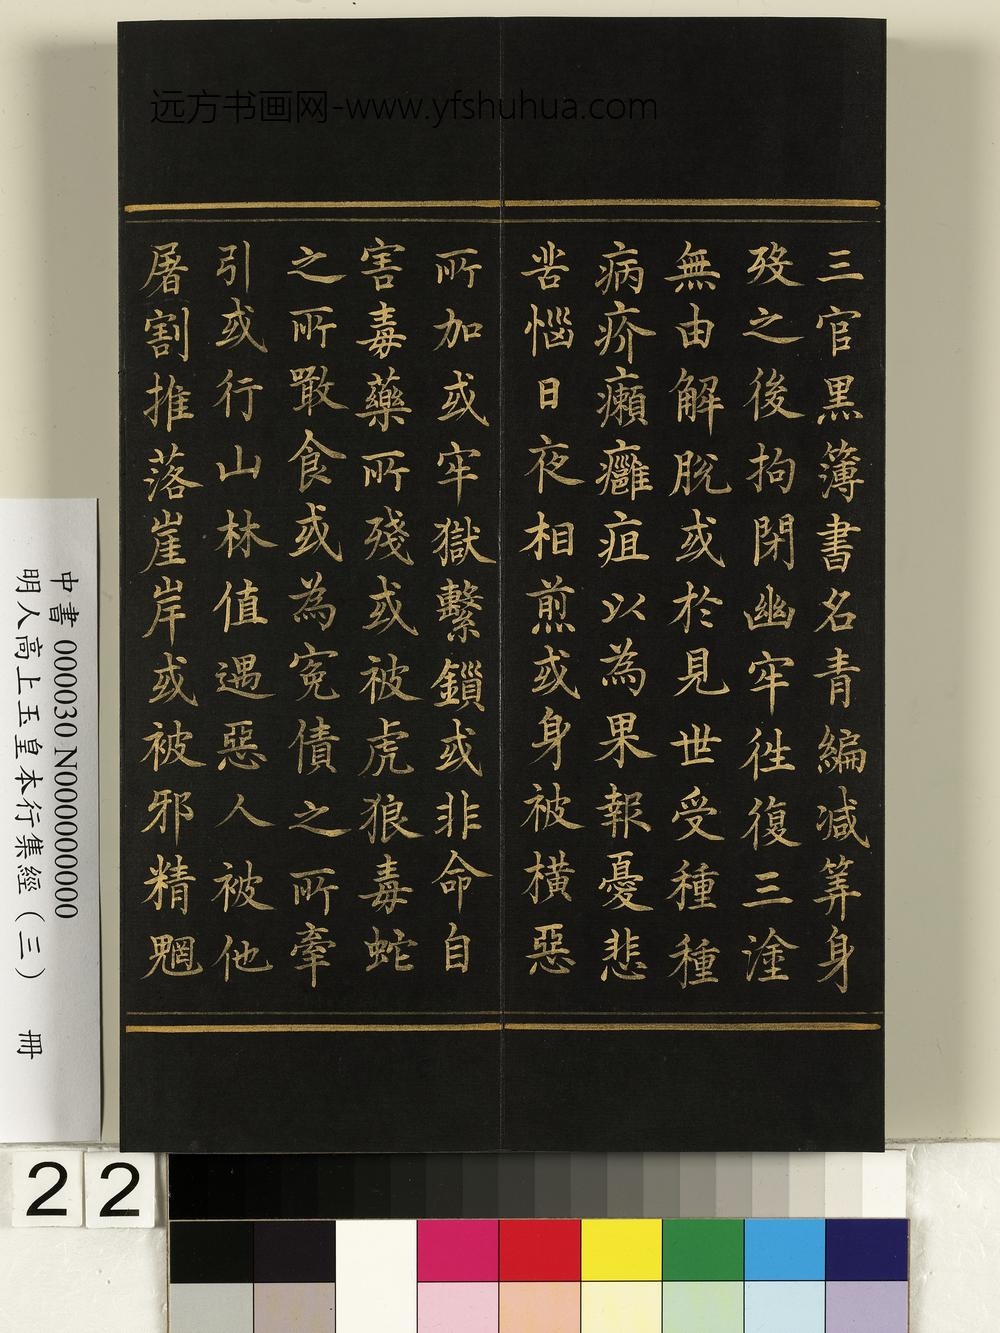 远方书画网-www.yfshuhua.com
三官黑簿書名青編减筭身
歿之後拘閉幽牢徃復三塗
無由解脫或於見世受種種
病疥癩癰疽以為果報憂悲
苦惱日夜相煎或身被橫惡
所加或牢獄繫鎖或非命自
害毒藥所殘或被虎狼毒蛇
之所噉食或為冤債之所牽
引或行山林值遇惡人被他
屠割推落崖岸或被邪精魍
中書 000030 N000000000
明人高上玉皇本行集經（三） 冊
22